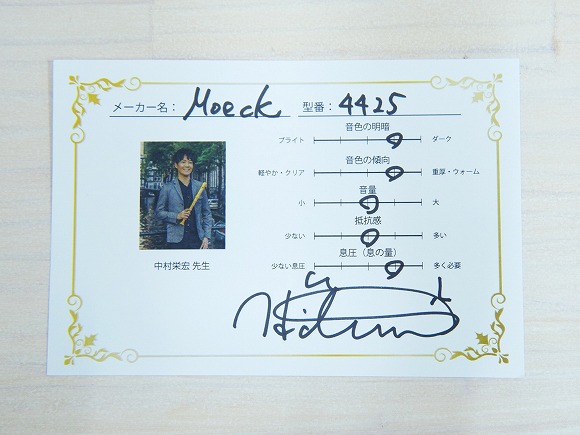 メーカー名： Moeck 型番： 4425
音色の明暗
ブライト ダーク
音色の傾向
軽やか・クリア 重厚・ウォーム
音量
小 大
抵抗感
少ない 多い
息圧（息の量）
少ない息圧 多く必要
中村栄宏 先生